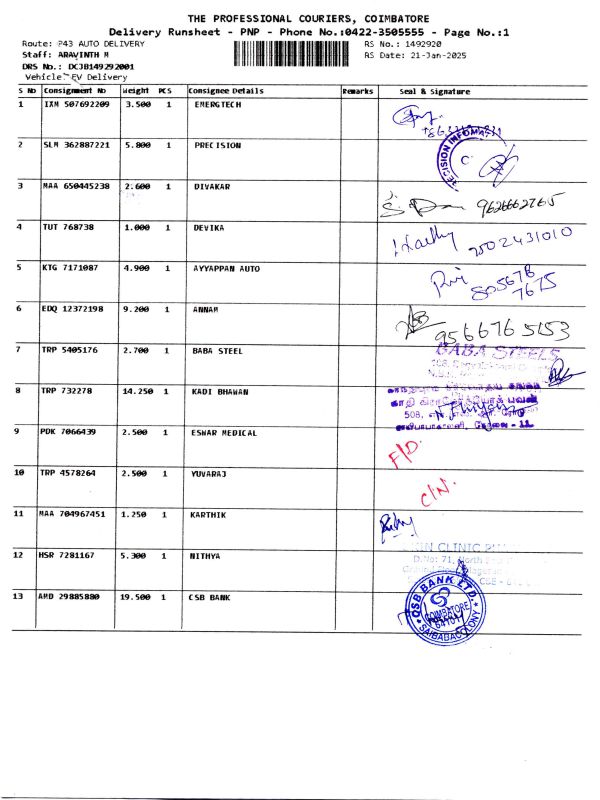 THE PROFESSIONAL COURIERS, COIMBATORE
Delivery Runsheet - PNP - Phone No.:0422-3505555 - Page No.:1
Route: P43 AUTO DELIVERY RS No.: 1492920
Staff: ARAVINTH M RS Date: 21-Jan-2025
DRS No.: DCJB149292001
Vehicle: EV Delivery
S No Consignment No Weight PCS Consignee Details Remarks Seal & Signature
1 IXM 507692209 3.500 1 EMERGTECH
2 SLM 362887221 5.800 1 PRECISION
3 MAA 650445238 2.600 1 DIVAKAR 9626662765
4 TUT 768738 1.000 1 DEVIKA 2502431010
5 KTG 7171087 4.900 1 AYYAPPAN AUTO 805678
7675
6 EDQ 12372198 9.200 1 ANNAM 9566765153
7 TRP 5405176 2.700 1 BABA STEEL BABA STEELS
8 TRP 732278 14.250 1 KADI BHAWAN
508,
- 11
9 PDK 7066439 2.500 1 ESWAR MEDICAL F/D.
10 TRP 4578264 2.500 1 YUVARAJ C/N.
11 MAA 704967451 1.250 1 KARTHIK
12 HSR 7281167 5.300 1 NITHYA CLINIC
D.No: 71, North
CBE
13 AMD 29885880 19.500 1 CSB BANK CSB BANK LTD.
COIMBATORE
SAIBABACOLONY